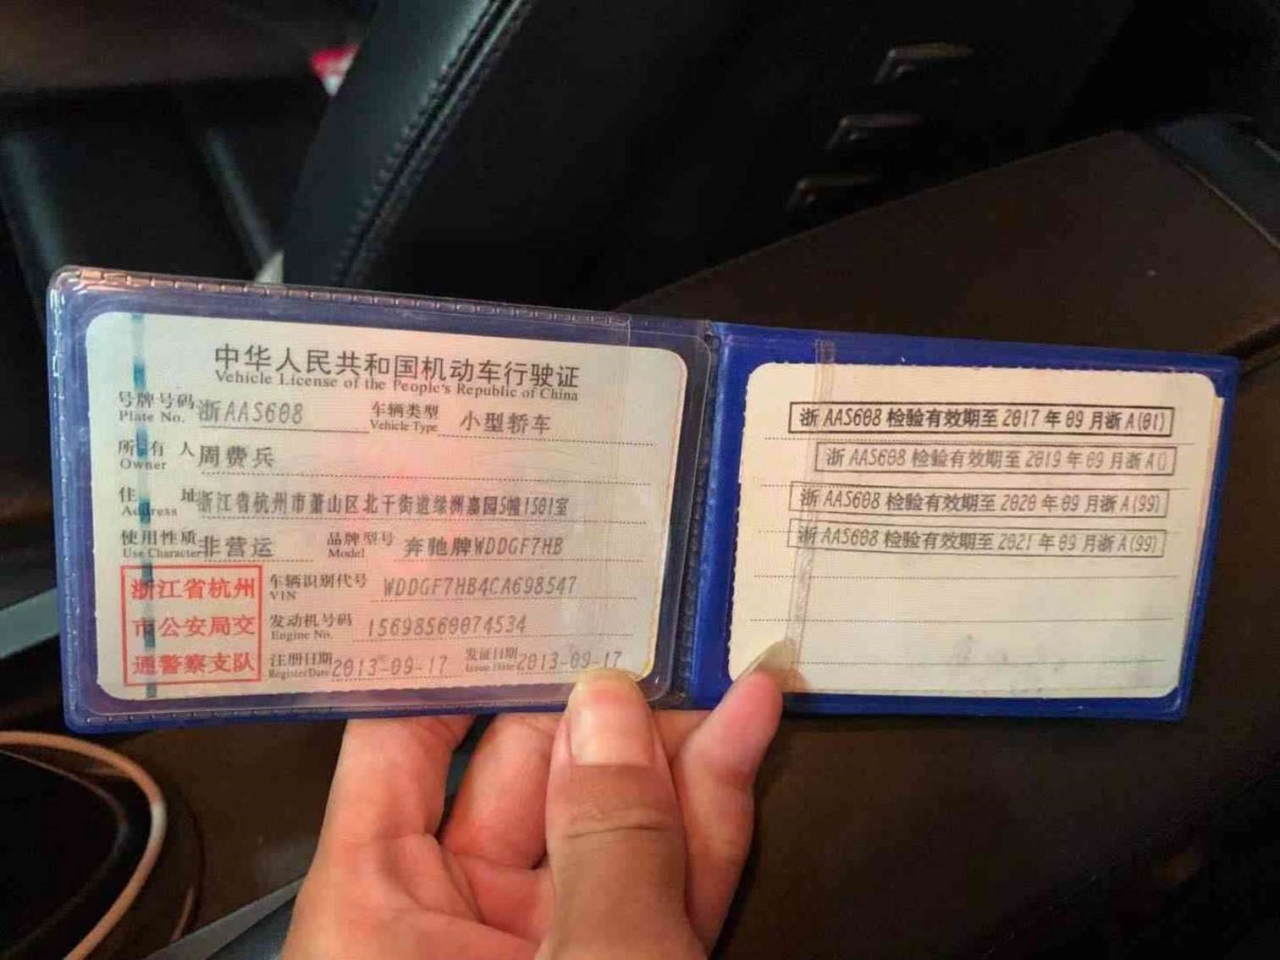 中华人民共和国机动车行驶证
Vehicle License of the People's Republic of China
号牌号码 Plate No. 浙AAS608 车辆类型 Vehicle Type 小型轿车
所有人 Owner 周费兵
住址 Address 浙江省杭州市萧山区北干街道绿洲嘉园5幢1501室
使用性质 Use Character 非营运 品牌型号 Model 奔驰牌WDDGF7HB
浙江省杭州市公安局交通警察支队
车辆识别代号 VIN WDDGF7HB4CA698547
发动机号码 Engine No. 15698560074534
注册日期 Register Date 2013-09-17 发证日期 Issue Date 2013-09-17
浙 AAS608 检验有效期至 2017 年 09 月浙 A(01)
浙 AAS608 检验有效期至 2019 年 09 月浙 A()
浙 AAS608 检验有效期至 2020 年 09 月浙 A(99)
浙 AAS608 检验有效期至 2021 年 09 月浙 A(99)